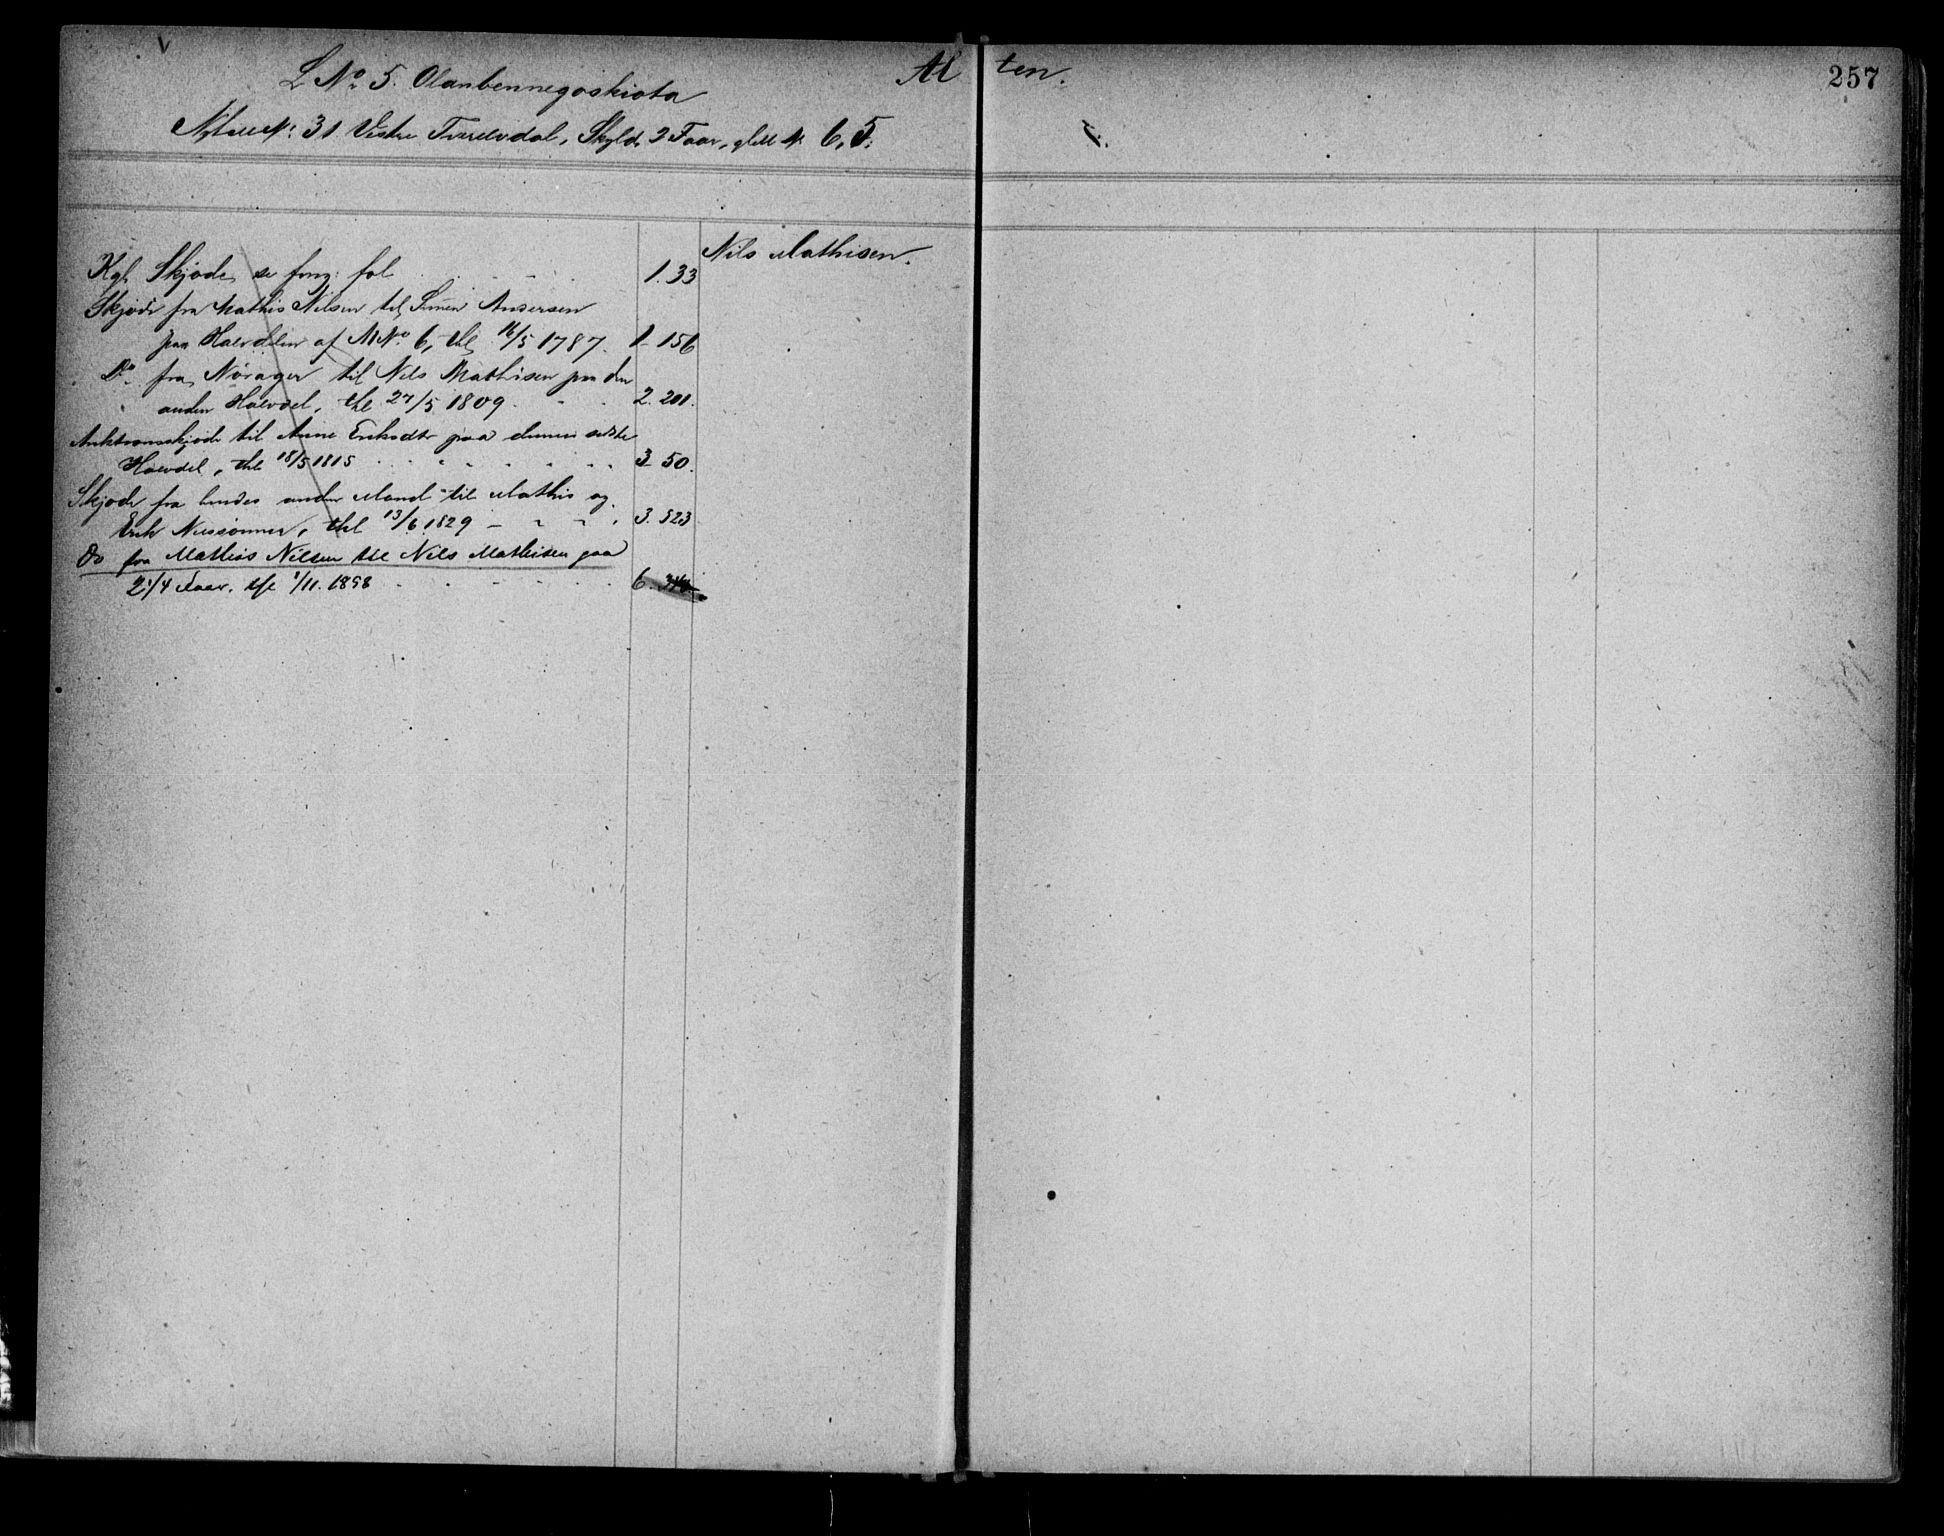 Al ten. 257
L No 5. Olanbennegoskiota
31 Vestre Tverelvdal, Skyld, 3 Faar, gl. 6,5.
Nils Mathisen.
Kgl. Skjøde, se forrg. fol 1. 33
Skjøde fra Mathis Nilsen til Simen Andersen
paa Halvdelen af MNo. 6, thl 16/5 1787. 1 - 156
Do. fra Nørager til Nils Mathisen paa den
anden Halvdel, thl 27/5 1809. 2. 201.
Auktionsskjøde til Anne Eriksdtr paa denne sidste
Halvdel, thl 18/5 1815 3 - 50.
Skjøde fra hendes anden Mand til Mathis og
Erik Nilssønner, thl 13/6 1829 - 3. 523
Do fra Mathis Nilsen til Nils Mathisen paa
2 1/4 Faar. 1/11. 1858 6.